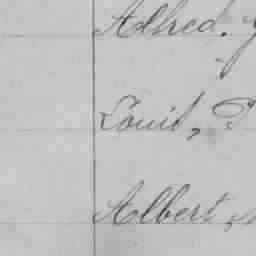 Alfred.
Louis,
Albert,